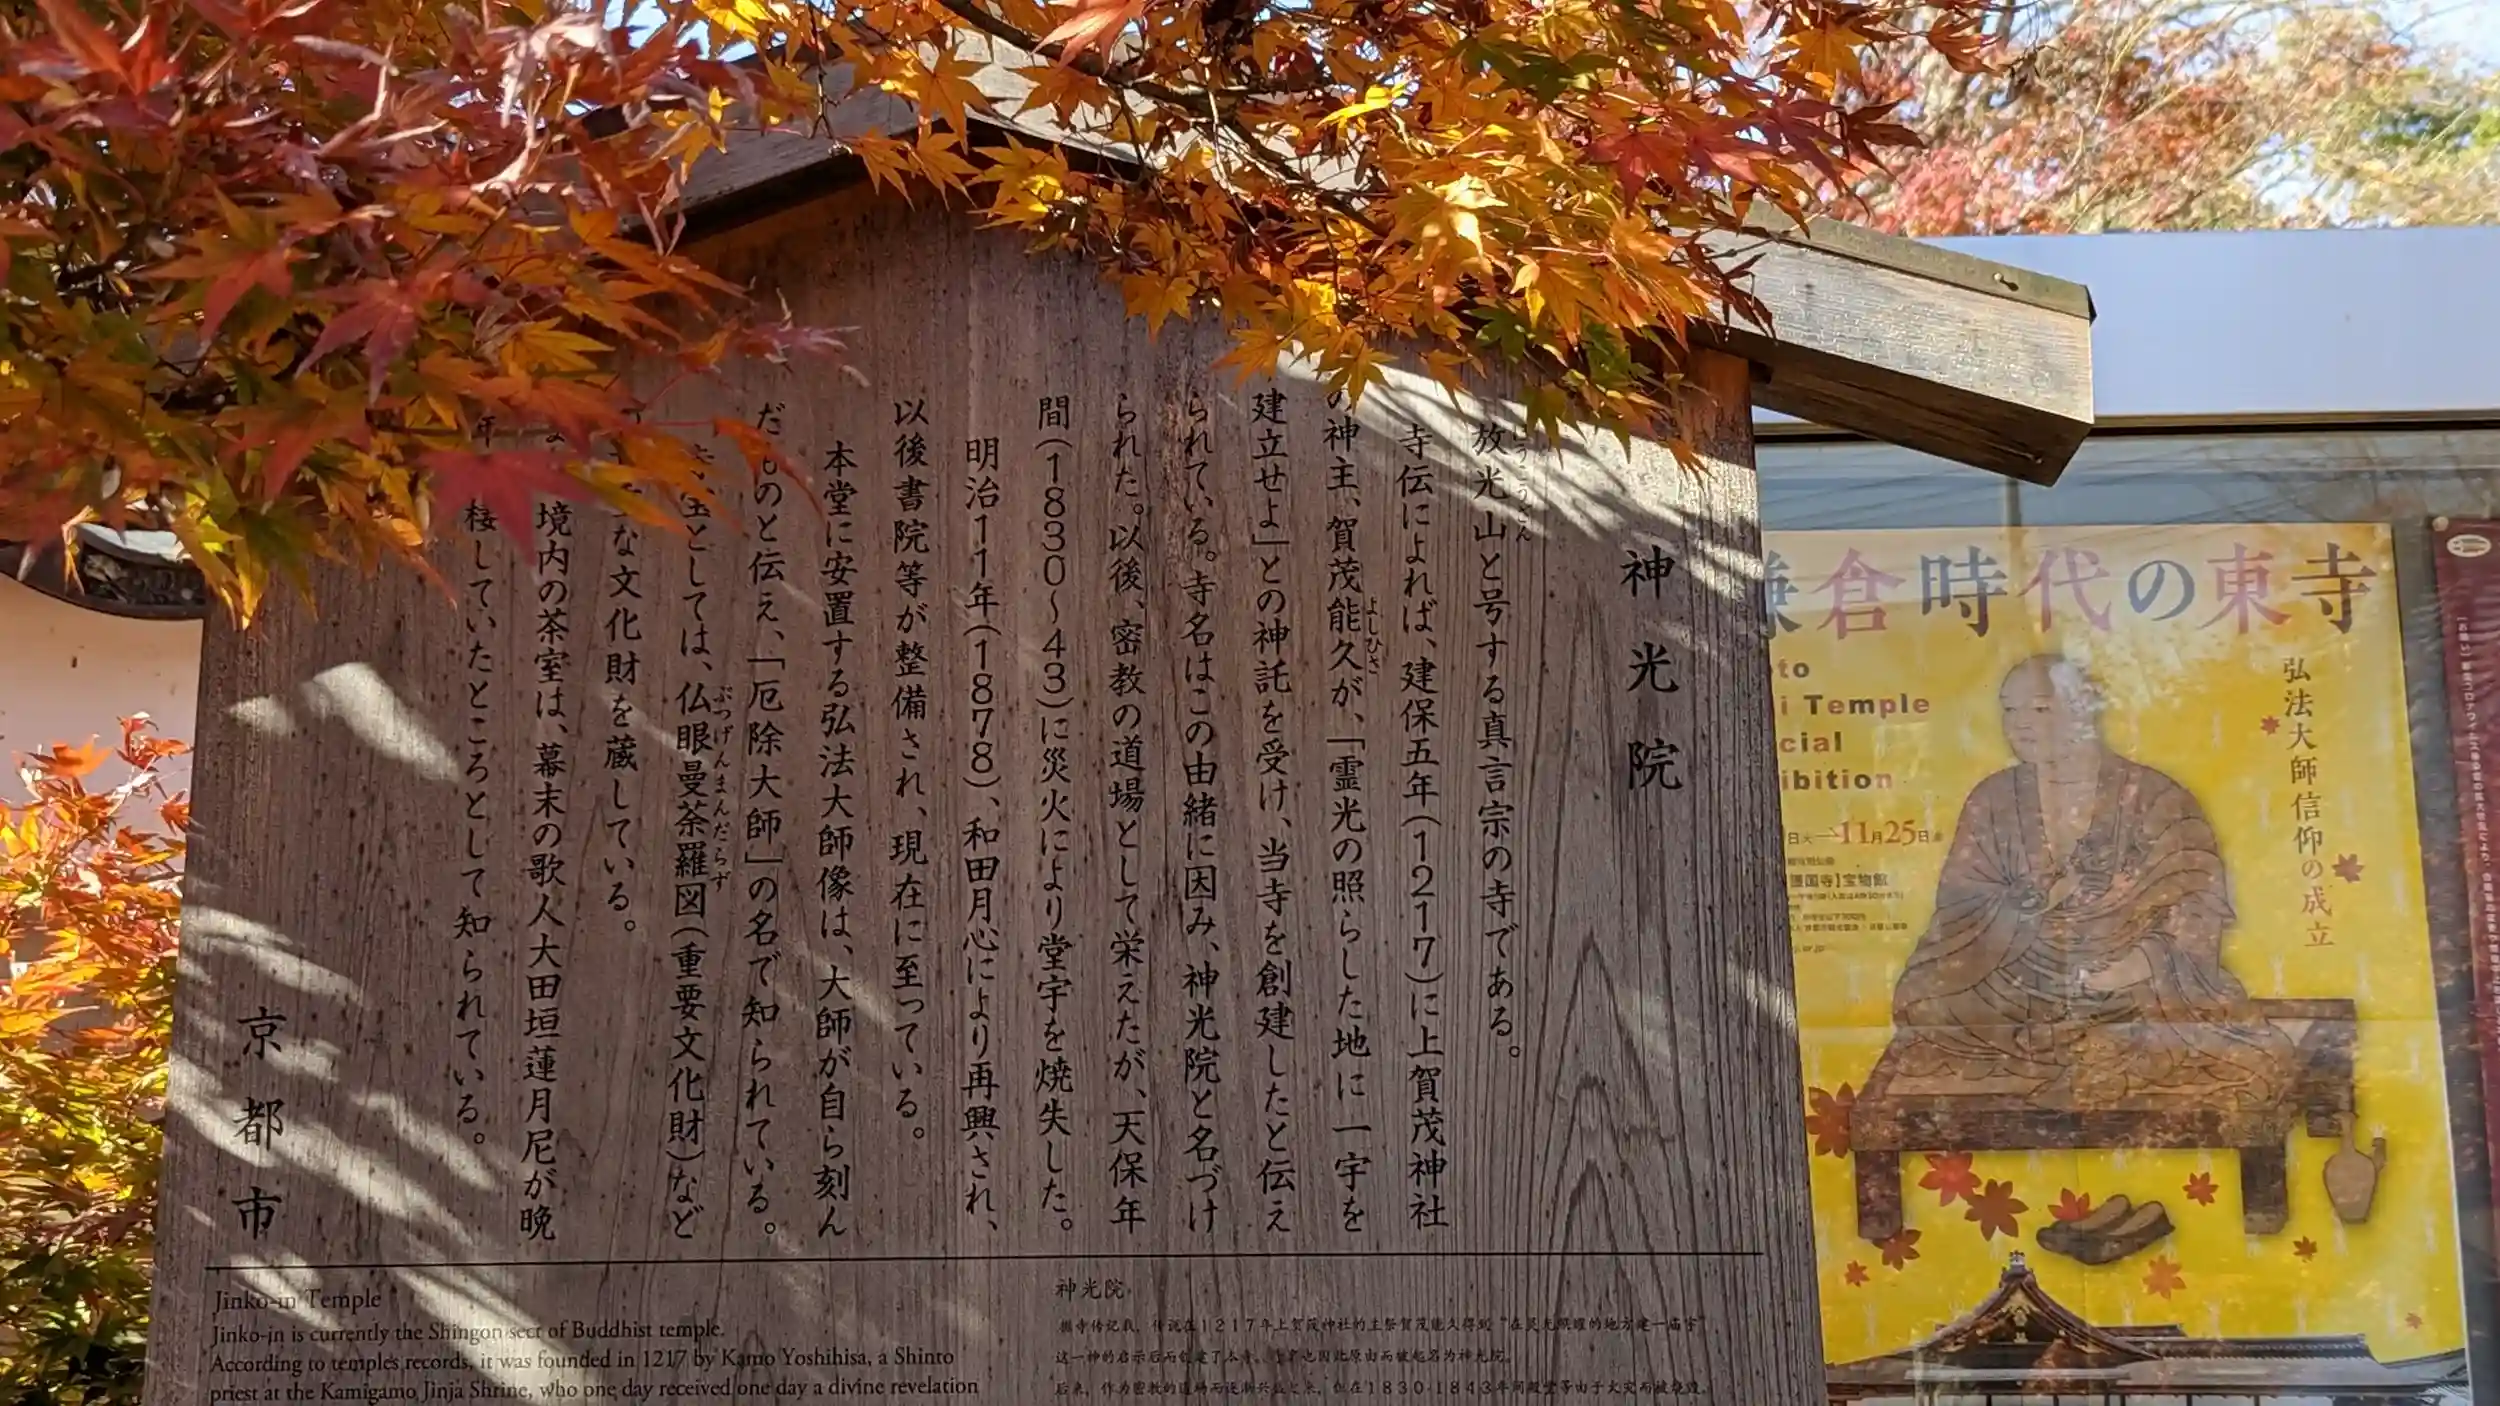 神光院
放光山と号する真言宗の寺である。
寺伝によれば、建保五年(1217)に上賀茂神社
の神主、賀茂能久が、「霊光の照らした地に一宇を
よしひさ
建立せよ」との神託を受け、当寺を創建したと伝え
られている。寺名はこの由緒に因み、神光院と名づけ
られた。以後、密教の道場として栄えたが、天保年
間(1830〜43)に災火により堂宇を焼失した。
明治11年(1878)、和田月心により再興され、
以後書院等が整備され、現在に至っている。
本堂に安置する弘法大師像は、大師が自ら刻ん
だものと伝え、「厄除大師」の名で知られている。
としては、仏眼曼荼羅図(重要文化財)など
ぶつげんまんだらず
な文化財を蔵している。
境内の茶室は、幕末の歌人大田垣蓮月尼が晩
年 棲していたところとして知られている。
京都市
Jinko-in Temple
Jinko-in is currently the Shingon sect of Buddhist temple.
According to temples records, it was founded in 1217 by Kamo Yoshihisa, a Shinto
priest at the Kamigamo Jinja Shrine, who one day received one day a divine revelation
神光院
1217年上贺茂神社的主祭贺茂能久得到
这一神的启示后而创建了本寺。
1830-1843年间
倉時代の東寺
弘法大師信仰の成立
Temple
11月25日
宝物館